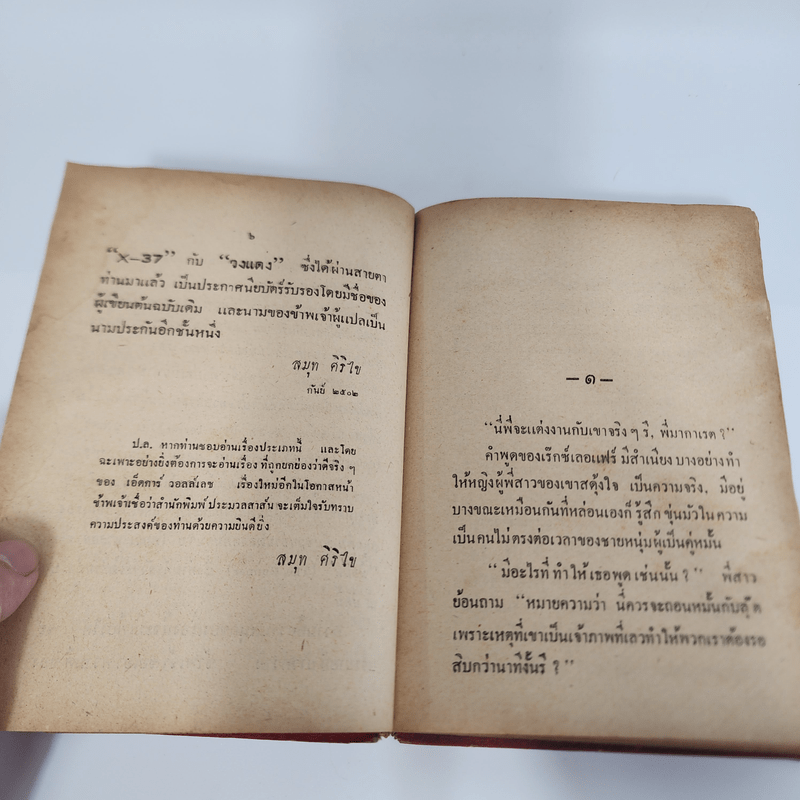 ๖
“X—37” กับ “วงแดง” ซึ่งได้ผ่านสายตา
ท่านมาแล้ว เป็นประกาศนียบัตร์รับรองโดยมีชื่อของ
ผู้เขียนต้นฉบับเดิม และนามของข้าพเจ้าผู้แปลเป็น
นามประกันอีกชั้นหนึ่ง
สมุท ศิริไข
กันย์ ๒๕๐๒
ป.ล. หากท่านชอบอ่านเรื่องประเภทนี้ และโดย
ฉะเพาะอย่างยิ่งต้องการจะอ่านเรื่อง ที่ถูกยกย่องว่าดีจริง ๆ
ของ เอ็ดการ์ วอลล์เลซ เรื่องใหม่อีกในโอกาสหน้า
ข้าพเจ้าเชื่อว่าสำนักพิมพ์ ประมวลสาส์น จะเต็มใจรับทราบ
ความประสงค์ของท่านด้วยความยินดียิ่ง
สมุท ศิริไข
—๑—
“นี่พี่จะแต่งงานกับเขาจริง ๆ รึ, พี่มากาเรต ?”
คำพูดของเร็กซ์เลอแฟร์ มีสำเนียง บางอย่างทำ
ให้หญิงผู้พี่สาวของเขาสดุ้งใจ เป็นความจริง, มีอยู่
บางขณะเหมือนกันที่หล่อนเองก็ รู้สึก ขุ่นมัวใน ความ
เป็น คนไม่ ตรงต่อเวลาของชายหนุ่มผู้เป็นคู่หมั้น
“ มีอะไรที่ ทำให้ เธอพูด เช่นนั้น ? ” พี่สาว
ย้อนถาม “หมายความว่า นี่ควรจะถอนหมั้นกับลู๊ค
เพราะเหตุที่เขาเป็นเจ้าภาพที่เลวทำให้พวกเราต้องรอ
สิบกว่านาทีงั้นรึ ? ”